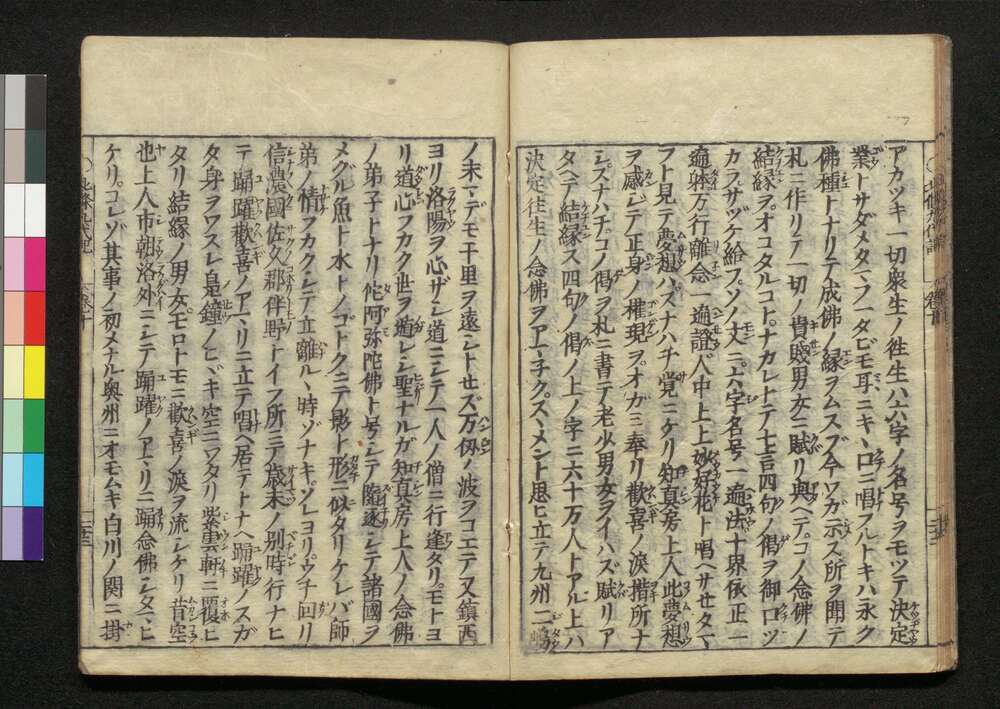 アカツキ一切衆生ノ往生ハ六字ノ名号ヲモツテ決定
業トサダメタマフ一タビモ耳ニキヽ口ニ唱フルトキハ永ク
佛種トナリテ成佛ノ縁ヲムスブ今ワガ示ス所ヲ聞テ
札ニ作リテ一切ノ貴賤男女ニ賦リ與ヘテコノ念佛ノ
結縁ヲオコタルコトナカレトテ七言四句ノ偈ヲ御口ツ
カラサヅケ給フソノ文ニ六字名号一遍法十界依正一
遍躰万行離念一遍證人中上上妙好花ト唱ヘサセタマ
フト見テ夢想ハスナハチ覚ニケリ知真房上人此夢想
ヲ感シテ正身ノ権現ヲオガミ奉リ歓喜ノ涙措所ナ
シスナハチコノ偈ヲ札ニ書テ老少男女ヲイハズ賦リア
タヘテ結縁ス四句ノ偈ノ上ノ字ニ六十万人トアルハ上ハ
決定往生ノ念佛ヲアマチクスヽメント思ヒ立テ九州二嶋
ノ末マデモ千里ヲ遠シトセズ万仭ノ波ヲコエテ又鎮西
ヨリ洛陽ヲ心ザシ道ニシテ一人ノ僧ニ行逢タリモトヨ
リ道心フカク世ヲ遁レシ聖ナルガ知真房上人ノ念佛
ノ弟子トナリ佗阿弥陀佛ト号シテ隨逐シテ諸國ヲ
メグル魚ト水トノゴトクニテ影ト形ニ似タリケレバ師
弟ノ情フカクシテ立離ルヽ時ゾナキソレヨリウチ回リ
信濃國佐久郡伴野トイフ所ニテ歳末ノ別時行ナヒ
テ踊躍歓喜ノアマリニ立テ唱ヘ居テトナヘ踊躍ノスガ
タ身ヲワスレ鳧鐘ノヒヾキ空ニワタリ紫雲軒ニ覆ヒ
タリ結縁ノ男女モロトモニ歓喜ノ涙ヲ流シケリ昔空
也上人市朝洛外ニシテ踊躍ノアマリニ踊念佛シタマヒ
ケリコレゾ其事ノ初メナル奥州ニオモムキ白川ノ関ニ掛